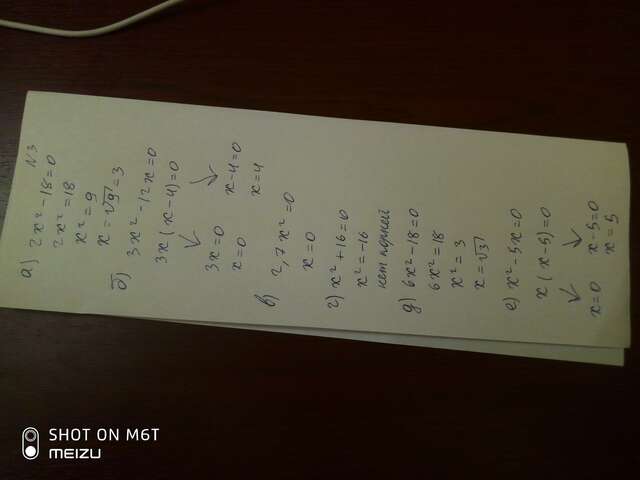 N3
а) 2x² - 18 = 0
2x² = 18
x² = 9
x = √9 = 3
б) 3x² - 12x = 0
3x(x - 4) = 0
3x = 0 x - 4 = 0
x = 0 x = 4
в) 2,7x² = 0
x = 0
г) x² + 16 = 0
x² = -16
нет корней
д) 6x² - 18 = 0
6x² = 18
x² = 3
x = √3
е) x² - 5x = 0
x(x - 5) = 0
x = 0 x - 5 = 0
x = 5
SHOT ON M6T
MEIZU